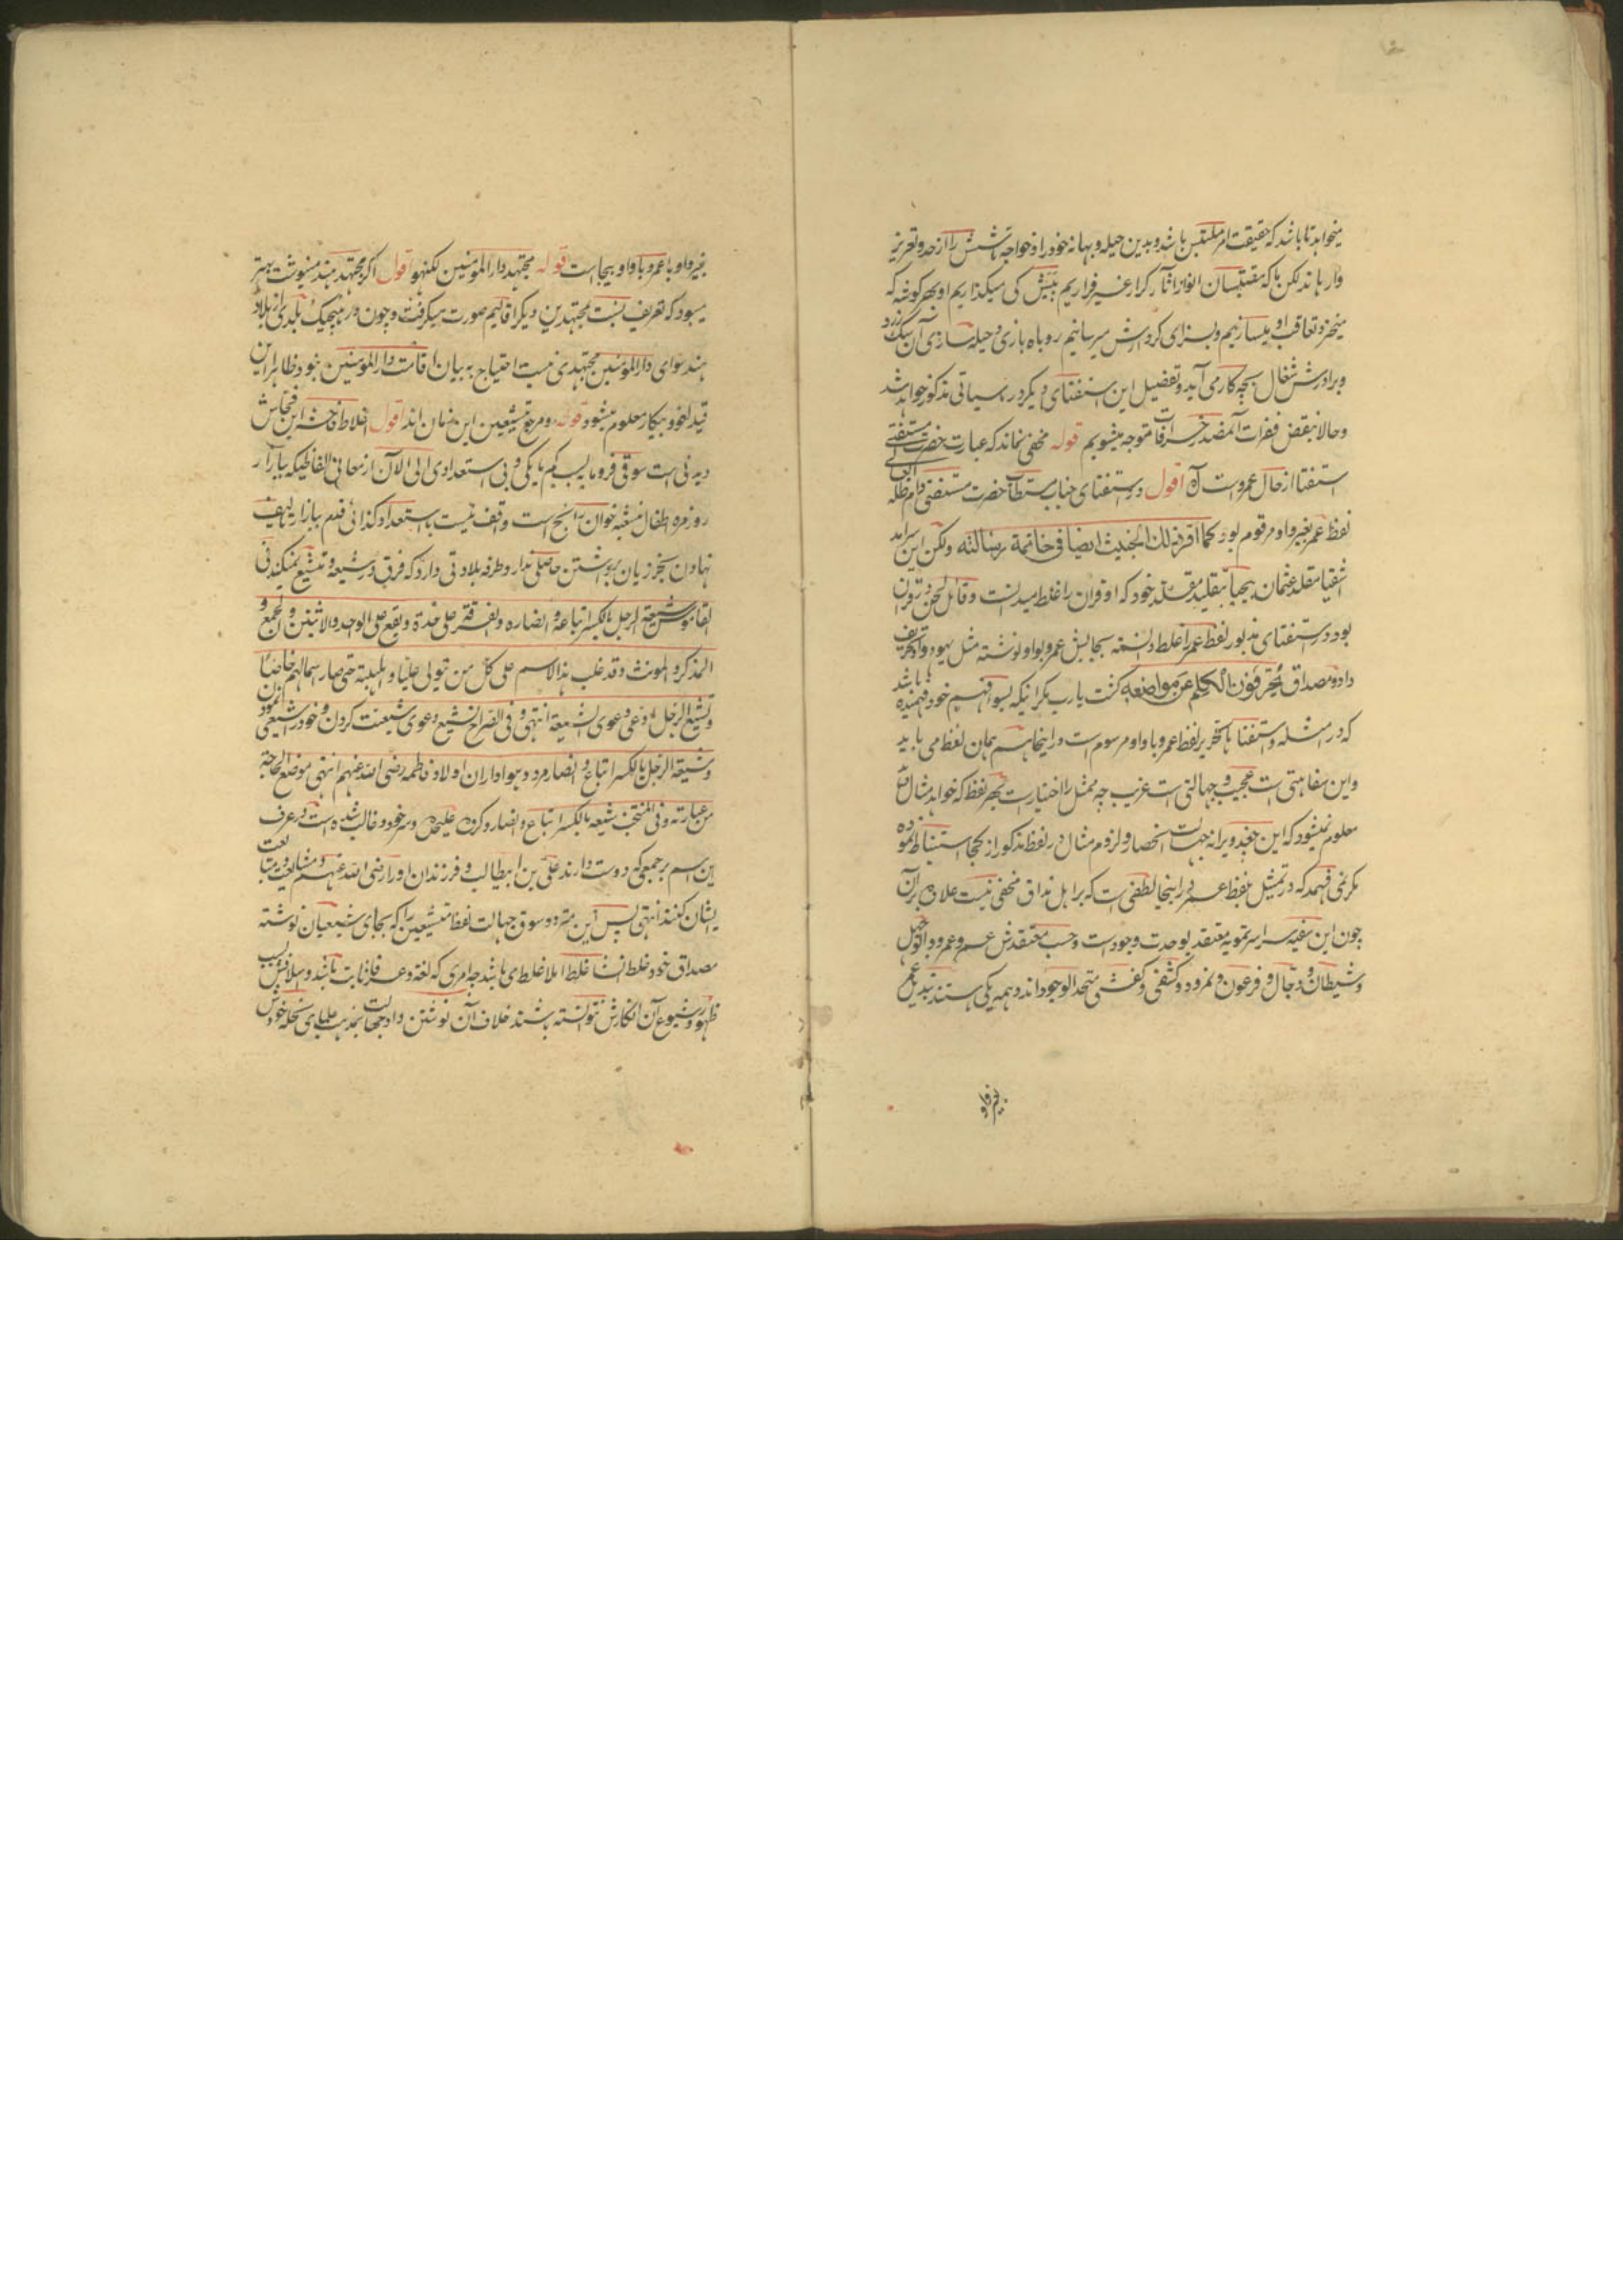 میخواهد تا باشد که حقیقت امر ملتبس باشد و بدین حیله و بهانه خود را و خواجه تاشش را از حد و تعزیر
وارهاند لکن ما که مقتبسان انوار آثار کرار غیر فراریم پیش کی میگذاریم او بهر گوشه که
میخزد تعاقب او میسازیم و بسزای کردارش میرسانیم روباه بازی و حیله سازی آن سگ زرد
و برادرش شغال بچه کار می آید و تفضیل این استفتای دیگر در سیاتی مذکور خواهد شد
و حالا بنقض فقرات آمصدر خرافات متوجه میشویم قوله مخفی نماند که عبارت حضرت مستفتی
استفتا از حال عمروست آه اقول در استفتای جناب مستطاب حضرت مستفتی دام ظله العالی
لفظ عمر بغیر واو مرقوم بود کما اقر به ذلك الخبیث ایضا فی خاتمة رسالته ولکن این سرامد
اشقیا مقلد عثمان بیحیا بتقلید مقلد خود که او قرآن را غلط میدانست و قائل لحن در قرآن
بود در استفتای مذبور لفظ عمر را غلط دانسته بجایش عمرو بواو نوشته مثل یهود داد تحریف
داد و مصداق یحرفون الکلم عن مواضعه گشت یارب مگر اینکه بسوء فهم خود فهمیده باشد
که در امثله و استفتاها تحریر لفظ عمرو با واو مرسوم است در اینجا هم همان لفظ می باید
و این سفاهتی است عجیب و جهالتی است غریب چه ممثل را اختیار است بهر لفظ که خواهد مثال آرد
معلوم نمیشود که این جغد ویرانه جهالت انحصار و لزوم مثال در لفظ مذکور از کجا استنباط نموده
مگر نمی فهمد که در تمثیل بلفظ عمر در اینجا لطفی است که بر اهل مذاق مخفی نیست علاوه بر آن
چون این سفیه سراسر تمویه معتقد بوحدت وجود است و حسب معتقدش عمر و عمرو و ابو جهل
و شیطان و دجال و فرعون و نمرود و کشفی و کفشی متحد الوجود اند و همه یکی هستند تبدیل عمر
بغیر واو
بغیر واو با عمرو با واو بیجاست قوله مجتهد دار المؤمنین لکنهو اقول اگر مجتهد هند مینوشت بهتر
میبود که تعریف نسبت بمجتهدین دیگر اقالیم صورت میگرفت و چون در هیچیک بلدی از بلاد
هند سوای دار المؤمنین مجتهدی نیست احتیاج به بیان اقامت دار المؤمنین نبود ظاهرا این
قید لغو و بیکار معلوم میشود قوله و مرجع متشیعین این زمان اند اقول اغلاط فاحشه این فحاش
دیدنی است سوقی فرومایه بسکه کم مایگی و بی استعدادی الی الآن از معانی الفاظیکه بیازار
روزمره اطفال مشبه خوان ابجد است واقف نیست باستعداد کذائی قدم ببازار تالیف
نهادن بجز زیان برداشتن حاصلی ندارد و طرفه بلادتی دارد که فرق در شیعه و متشیع نمیکند فی
القاموس شیعة الرجل بالکسر اتباعه و انصاره و الفرقة علی حدة و یقع علی الواحد و الاثنین و الجمع و
المذکر و المونث و قد غلب هذا الاسم علی کل من یتولی علیا و اهلبیته حتی صار اسما لهم خاصا
و تشیع الرجل ادعی دعوی الشیعة انتهی و فی الصراح تشیع دعوی شیعیت کردن و خود را شیعی نمودن
و شیعة الرجل بالکسر اتباع و انصار مرد و هواداران اولاد فاطمه رضی الله عنهم انتهی موضع الحاجة
من عبارته و فی المنتخب شیعه بالکسر اتباع و انصار و گروه علیحده و سر خود و غالب شده است در عرف
این اسم بر جمعی که دوست دارند علی بن ابیطالب و فرزندان او را رضی الله عنهم و مشایعت و متابعت
ایشان کنند انتهی پس این متردد سوق جهالت لفظ متشیعین را که بجای شیعیان نوشته
مصداق خود غلط انشا غلط املا غلط می باشد چه امری که لغة و عرفا ثابت باشد و اسلافش بسبب
ظهور و شیوع آن انکارش نتوانسته باشند خلاف آن نوشتن داد جهالت بمذهب علمای نحله خودش